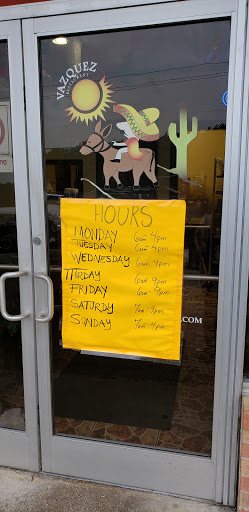 VAZQUEZ
RESTAURANT
HOURS
MONDAY 6am 4pm
TUESDAY 6am 4pm
WEDNESDAY 6am 4pm
TTIRDAY 6am 4pm
FRIDAY 6am 4pm
SATURDY 7am 4pm
SUNDAY 7am 4pm
.COM